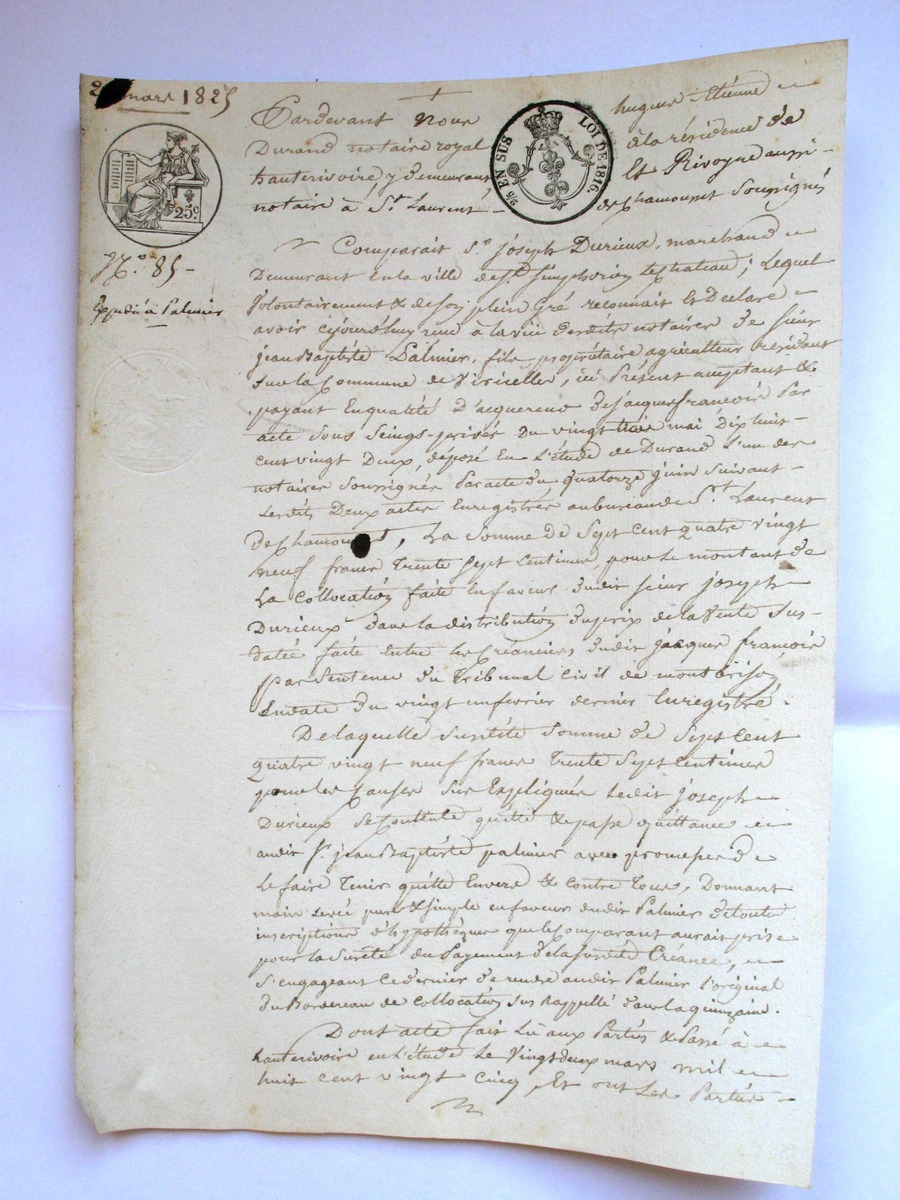 mars 1825
25c
2/5 EN SUS LOI DE 1816.
N.o 85
Expédié à Palmier
Pardevant Nous hugues Etienne
Durand notaire royal à la résidence de
hauterivoire y demeurant Et Rivoyre aussi
notaire à St. Laurent de Chamousset Soussignés
Comparait Sr. joseph Durieux, marchand
Demeurant en la ville de St. Simphorien le chateau; Lequel
Volontairement & de son plein Gré reconnait Et Declare
avoir cejourd'huy reçu à la vüe desdits notaires de sieur
jean Baptiste Palmier, fils, propriétaire agriculteur résidant
sur la Commune de Viricelles, ici Présent acceptant &
payant En qualité D'acquereur de jacques françois Par
acte sous Seings-privés Du vingt trois mai Dix huit
cent vingt Deux, déposé En L'étude de Durand L'un des
notaires Soussignés Par acte du quatorze juin suivant
Lesdits Deux actes Enregistrés au bureau de St. Laurent
de Chamousset, La Somme de Sept cent quatre vingt
neuf francs Trente Sept Centimes, pour le montant de
La Collocation faite En faveur dudit sieur joseph
Durieux dans la distribution du prix de la Vente sus-
datée faite Entre les Créanciers dudit jacques françois
par Sentence du Tribunal Civil de montbrison
En date du vingt un fevrier dernier Enregistré.
De laquelle susdite Somme de Sept Cent
quatre vingt neuf francs Trente Sept Centimes
pour les Causes sus Expliquées Ledit joseph
Durieux Se Contente quitte & passe quittance
audit Sr. jean Baptiste palmier avec promesse de
Le faire Tenir quitte Envers & contre Tous, Donnant
main levée pure & simple en faveur dudit Palmier de toutes
inscriptions d'hypothèques que le Comparant aurait prise
pour la Sureté du Payement de la susdite Créance,
S'engageant Ce dernier de rendre audit Palmier l'original
du Bordereau de Collocation sus Rappellé dans la quinzaine.
Dont acte fait Lu aux Parties & Passé à
hauterivoire en L'étude Le Vingt deux mars mil
huit cent vingt cinq, Et ont Les Parties